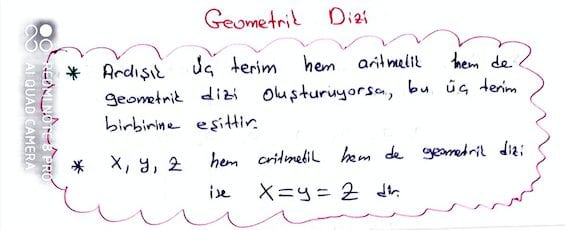 Geometrik Dizi
* Ardışık üç terim hem aritmetik hem de
geometrik dizi oluşturuyorsa, bu üç terim
birbirine eşittir.
* X, y, z hem aritmetik hem de geometrik dizi
ise X=y=z dir.
REDMI NOTE 8 PRO
AI QUAD CAMERA